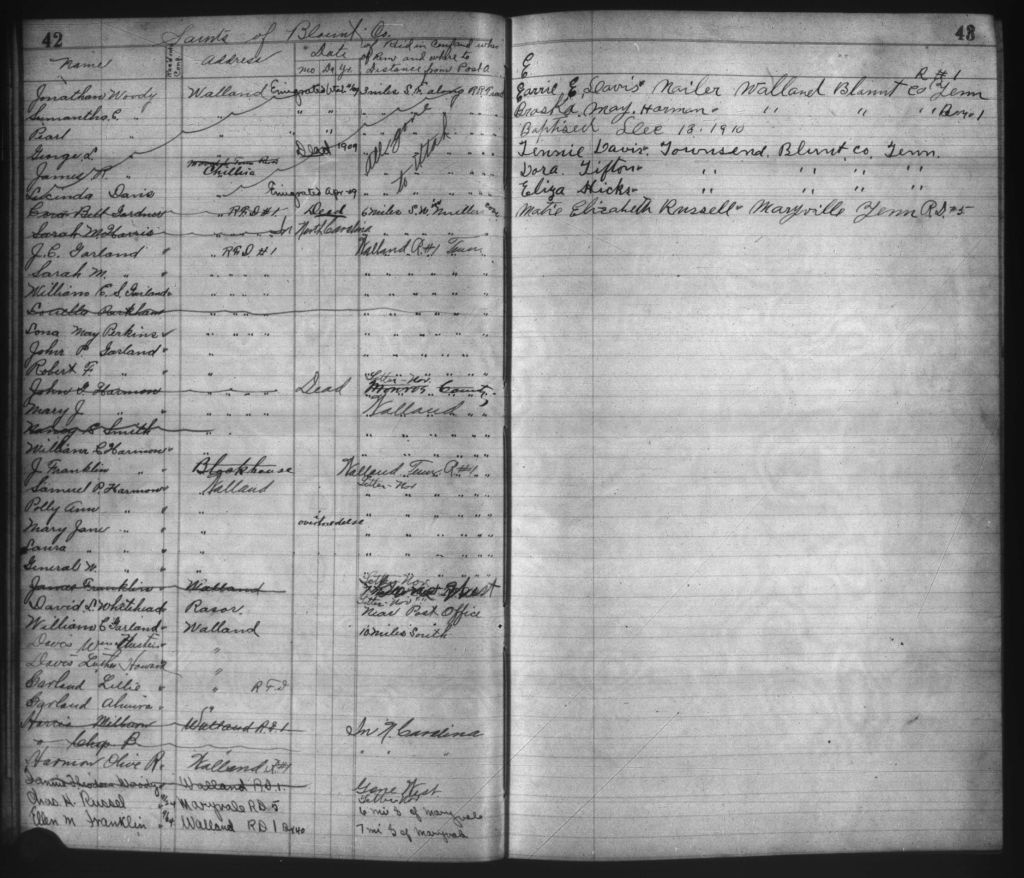 42
Saints of Blount Co.
Name Address Date mo Da Yr. If Resid in Company when
of Rm and where to
Distance from Post O.
Jonathan Woody Walland Emigrated 3 miles S.E. along RR Track
Sumantha C. " " "
Pearl " " "
George L. " Dead 1909 " all gone to Utah
James M. " Chillico
Lucinda Davis Emigrated Apr 09
Cora Bell Gardner R.F.D #1. Dead 6 miles S.W. Miller Cove
Sarah M Harris North Carolina
J.C. Garland " R.F.D #1 Walland R#1 Tenn
Sarah M. " " " " " " " " " "
William C. S. Garland " " " " " " " " "
Louella Parkham " " " " " " " " "
Lona May Perkins " " " " " " " " "
John P. Garland " " " " " "
Robert F. " " " " " "
John G Harmon " " " " Dead Letter - Nov. Monroe County
Mary J. " " " " " Walland
Nancy E Smith " " " " " "
William C Harmon " " " " " "
J. Franklin " " Blockhouse Walland Tenn R#1
Samuel P. Harmon Walland Letter - Nov
Polly Ann " " " " " " "
Mary Jane " " "
Laura " " "
General W. " " "
James Franklin Walland
David L. Whitehead Rasor. Near Post Office
William C Garland Walland 10 miles South
Davis Wm "
Davis Luther Howard "
Garland Lillie " " R.F.D
Garland Almira " "
Harris Milburn Walland R.D.1 In N. Carolina
" Chap B " "
Harmon Olive R. Walland R#1
Woody Walland R.D.1. Gone West
Chas H. Russel Maryvale R.D.5 6 mi S of maryvale
Ellen M. Franklin Walland R.D 1 Box 40 7 mi S of maryvale
43
E
R #1
Carrie E. Davis Nailer Walland Blunt Co Tenn
May Harmon " " " Box 1
Baptised Dec 18. 1910
Tennie Davis. Townsend. Blunt co. Tenn.
Dora Tipton " " " "
Eliza Hicks " " " "
Matie Elizabeth Russell Maryville Tenn R.D. #5